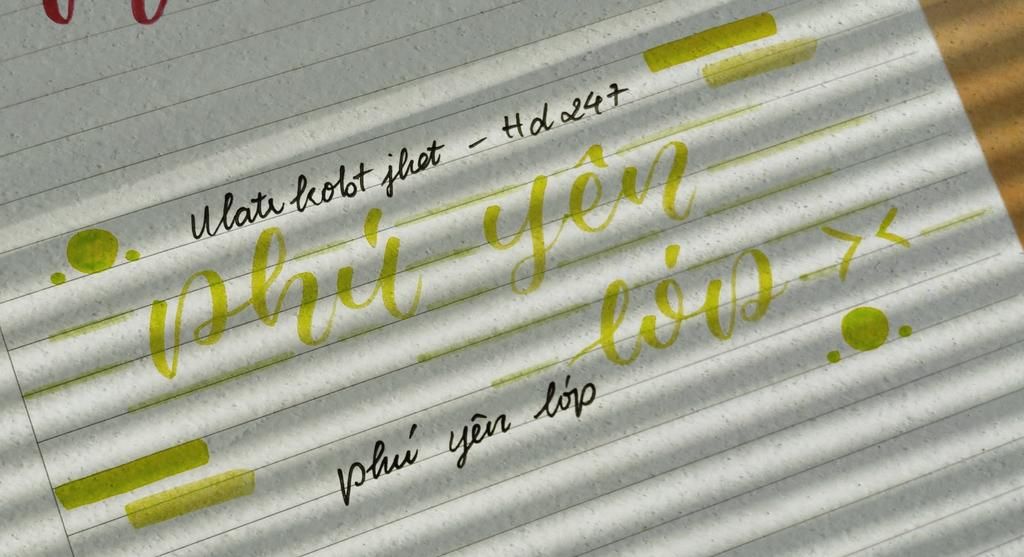 Ulatr kolot jhet - Hd 247
phú yên
lớp ><
phú yên lớp